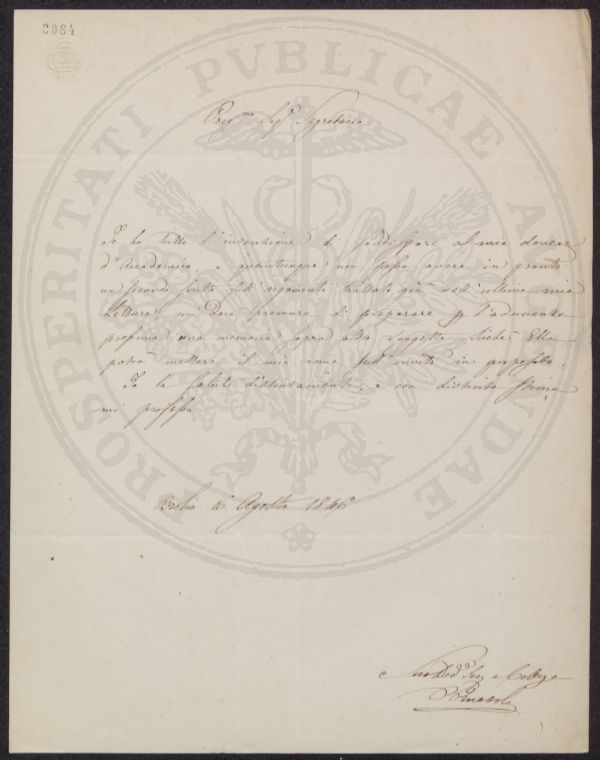 2084
PROSPERITATI PUBLICAE AUGENDAE
Preg.mo Sig.r Segretario
Io ho tutta l'intenzione di soddisfare al mio dovere
d'Accademico e quantunque non possa avere in pronto
un secondo sull'argomento trattato già nell'ultima mia
Lettura mi darò premura di preparare p l'adunanza
prossima una memoria sopra altro soggetto Ella
potrà mettere il mio nome sull'invito in proposito.
Io la saluto distintamente, e con distinta stima
mi professo
Agosto 184
Suo Dev. e Collega